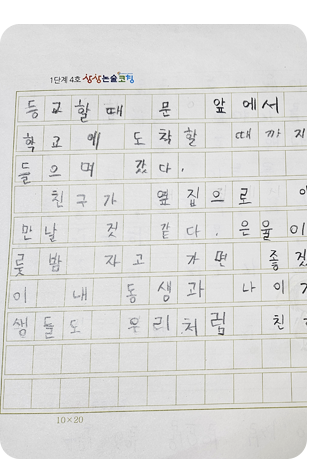 1단계 4호 상상논술코칭
등교할때 문 앞에서
학교에 도착할 때까지
들으며 갔다.
친구가 옆집으로
만날 짓 같다. 은율이
룻밤 자고 가면 좋겠
이 내 동생과 나이가
생들도 우리처럼 친
10×20